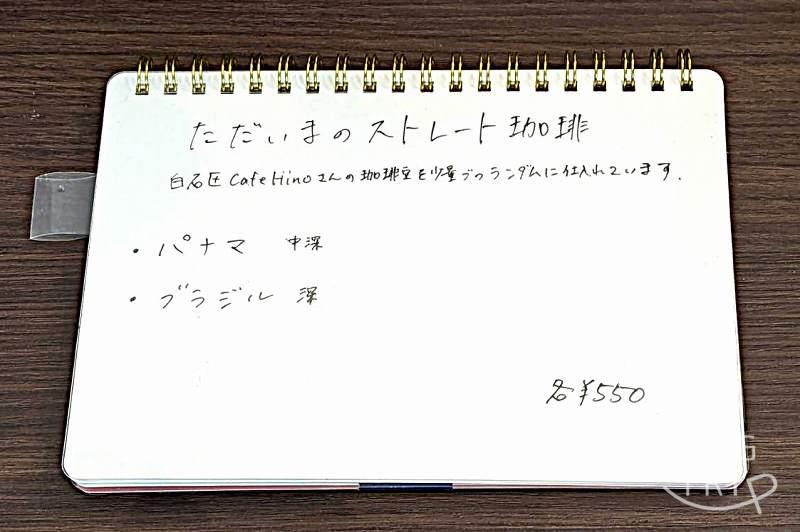 ただいまのストレート珈琲
白石区 Cafe Hinoさんの珈琲豆を少量づつランダムに仕入れています.
・パナマ 中深
・ブラジル 深
各¥550
TRIP